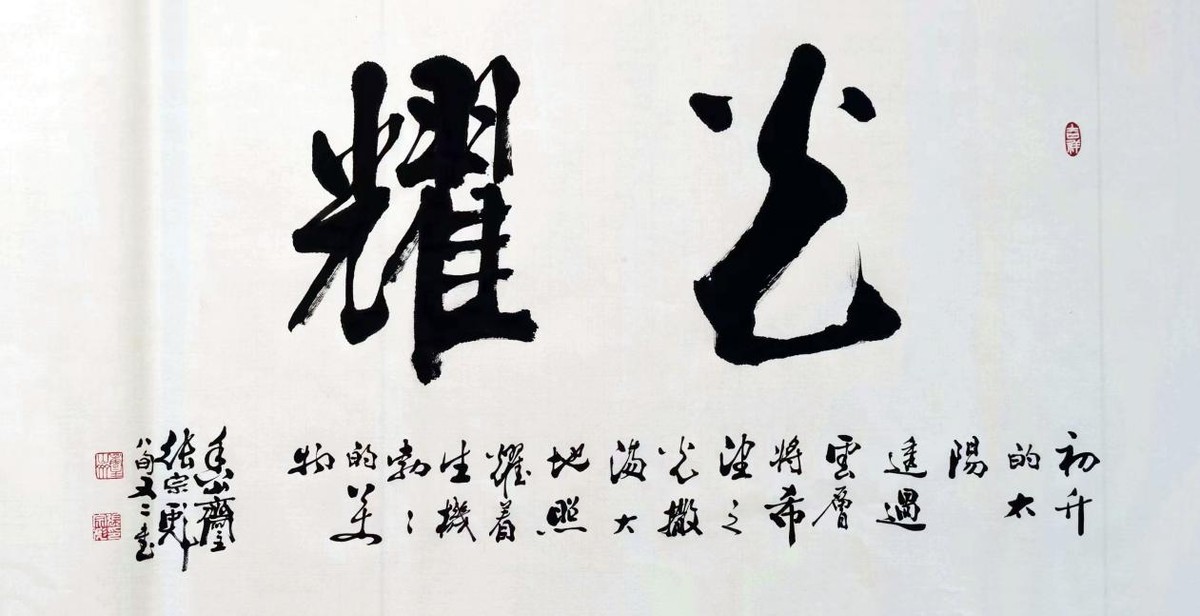 吉祥
光耀
初升
的太
陽
透過
雲層
將希
望之
光撒
滿大
地照
耀着
生機
勃〻
的萬
物
山齋主
張宗
八旬又二書